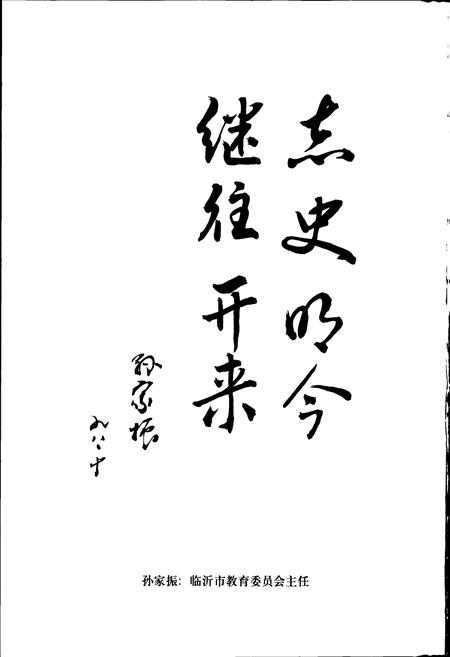 志史明今
继往开来
孙家振
九八、十
孙家振：临沂市教育委员会主任